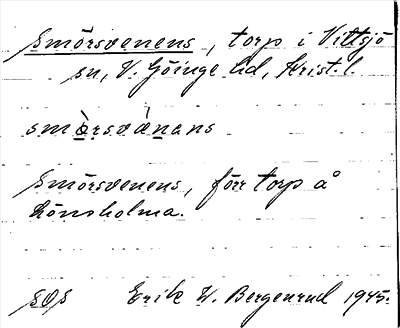 Smörsvenens, torp i Vittsjö
sn, V. Göinge hd, Krist. l.
smö̀rsvä̀nans
Smörsvenens, förr torp å
Lönsholma.
SOS Erik W. Bergenrud 1945.